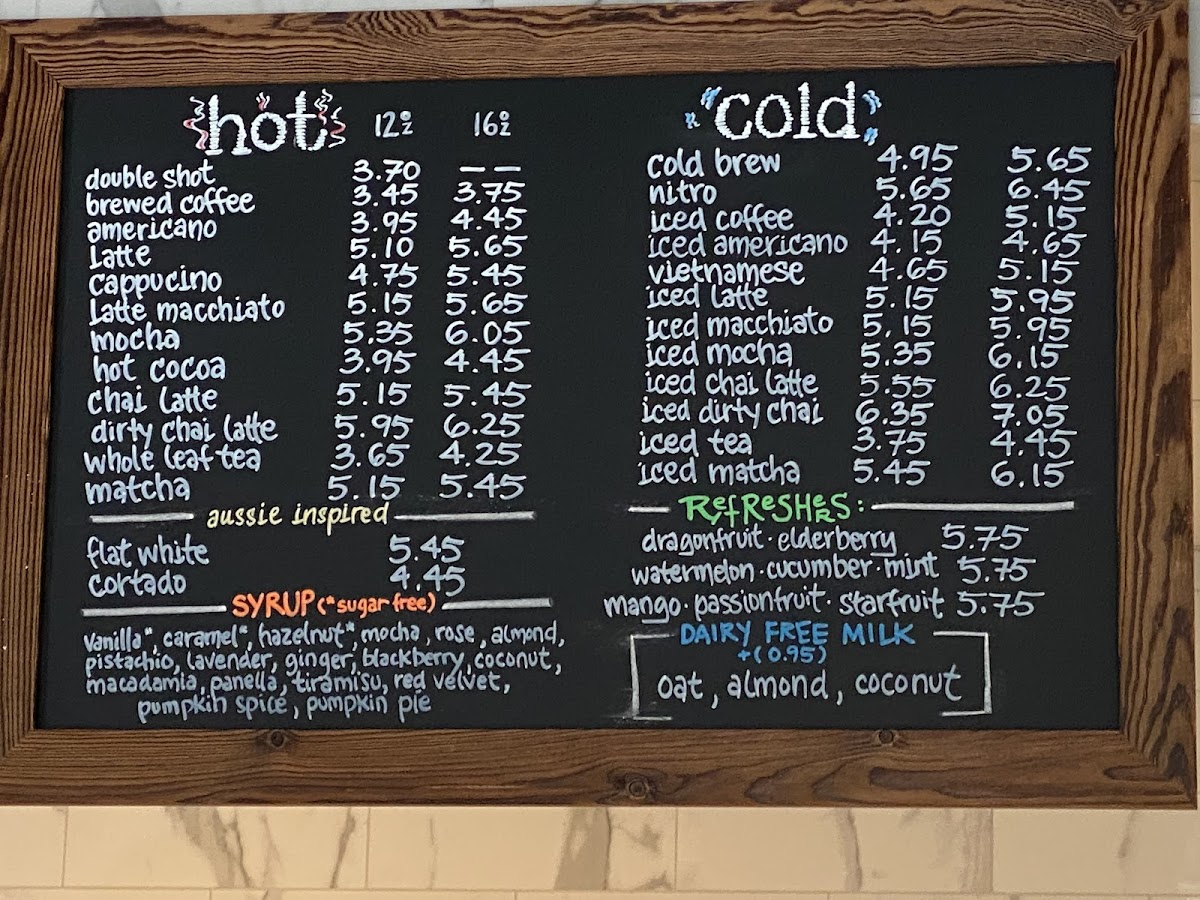 hot 12oz 16oz
double shot 3.70 — —
brewed coffee 3.45 3.75
americano 3.95 4.45
Latte 5.10 5.65
cappucino 4.75 5.45
Latte macchiato 5.15 5.65
mocha 5.35 6.05
hot cocoa 3.95 4.45
chai latte 5.15 5.45
dirty chai latte 5.95 6.25
whole leaf tea 3.65 4.25
matcha 5.15 5.45
aussie inspired
flat white 5.45
cortado 4.45
SYRUP (*sugar free)
Vanilla*, caramel*, hazelnut*, mocha, rose, almond,
pistachio, lavender, ginger, blackberry, coconut,
macadamia, panella, tiramisu, red velvet,
pumpkin spice, pumpkin pie
cold
cold brew 4.95 5.65
nitro 5.65 6.45
iced coffee 4.20 5.15
iced americano 4.15 4.65
vietnamese 4.65 5.15
iced latte 5.15 5.95
iced macchiato 5.15 5.95
iced mocha 5.35 6.15
iced chai latte 5.55 6.25
iced dirty chai 6.35 7.05
iced tea 3.75 4.45
iced matcha 5.45 6.15
RefResHeRS:
dragonfruit · elderberry 5.75
watermelon · cucumber · mint 5.75
mango · passionfruit · starfruit 5.75
DAIRY FREE MILK
+(0.95)
oat, almond, coconut